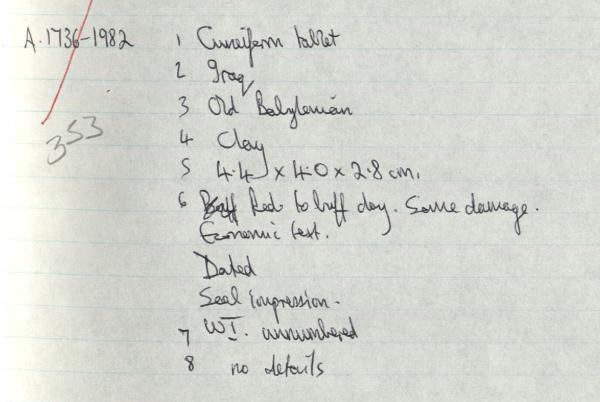 A.1736-1982 1 Cuneiform tablet
2 Iraq
3 Old Babylonian
353
4 Clay
5 4.4 x 4.0 x 2.8 cm.
6 Buff Red to buff clay. Some damage.
Economic text.
Dated
Seal impression.
7 WI. unnumbered
8 no details